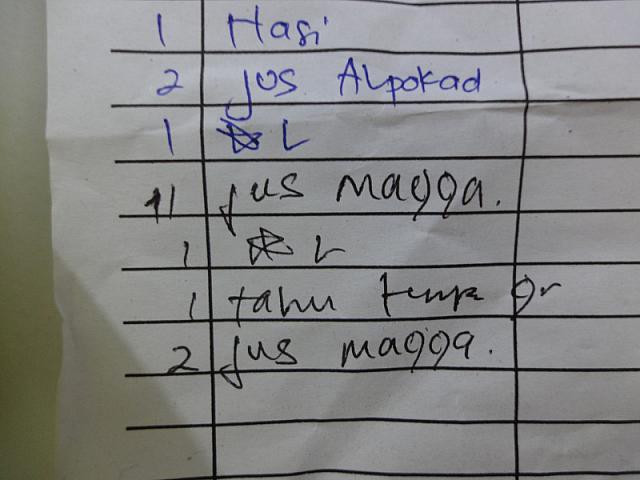 1 Hasi
2 jus Alpokad
1 ☆ L
11 jus magga.
1 ☆ L
1 tahu tempe gr
2 jus magga.